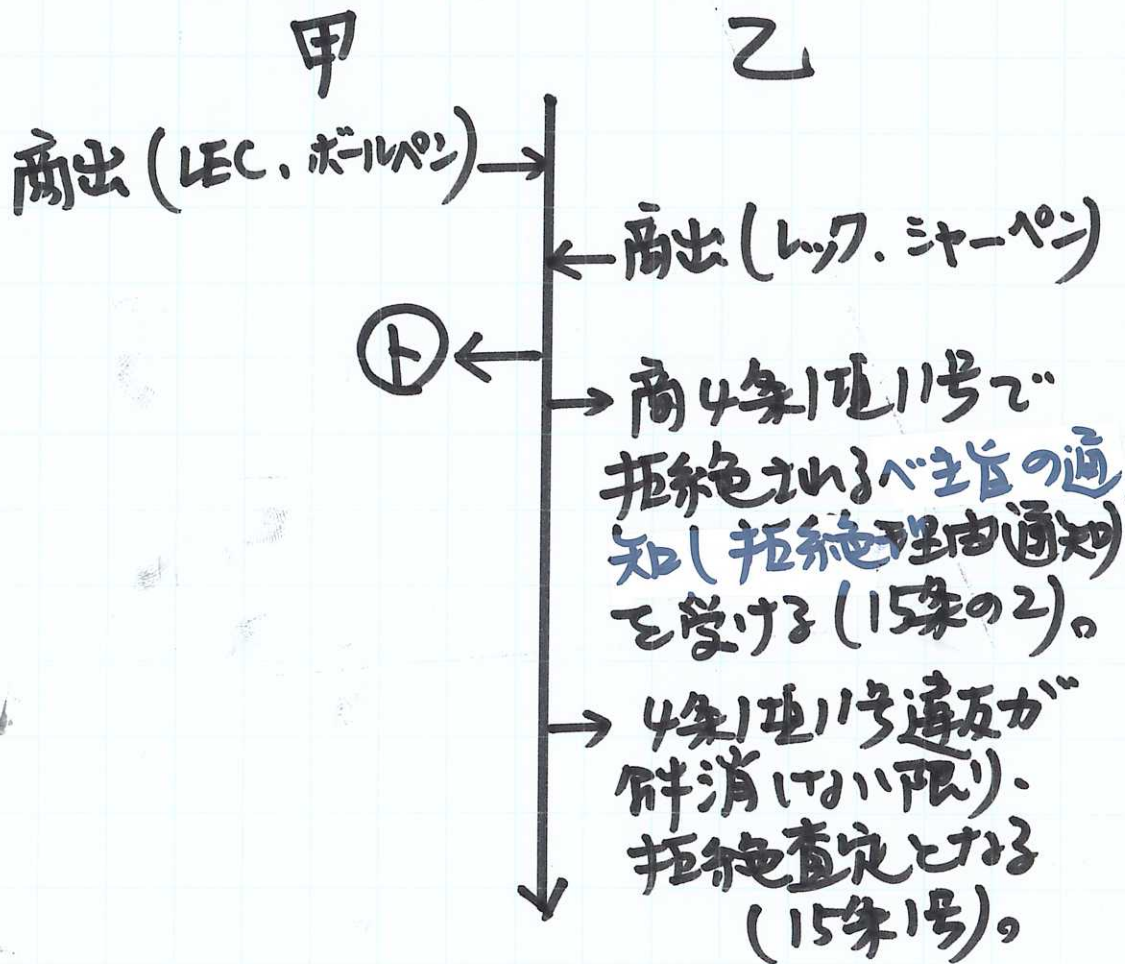 甲
乙
商出(LEC、ボールペン)
商出(レック、シャーペン)
ト
商4条1項11号で
拒絶されるべき旨の通
知(拒絶理由通知)
を受ける(15条の2)。
4条1項11号違反が
解消しない限り、
拒絶査定となる
(15条1号)。